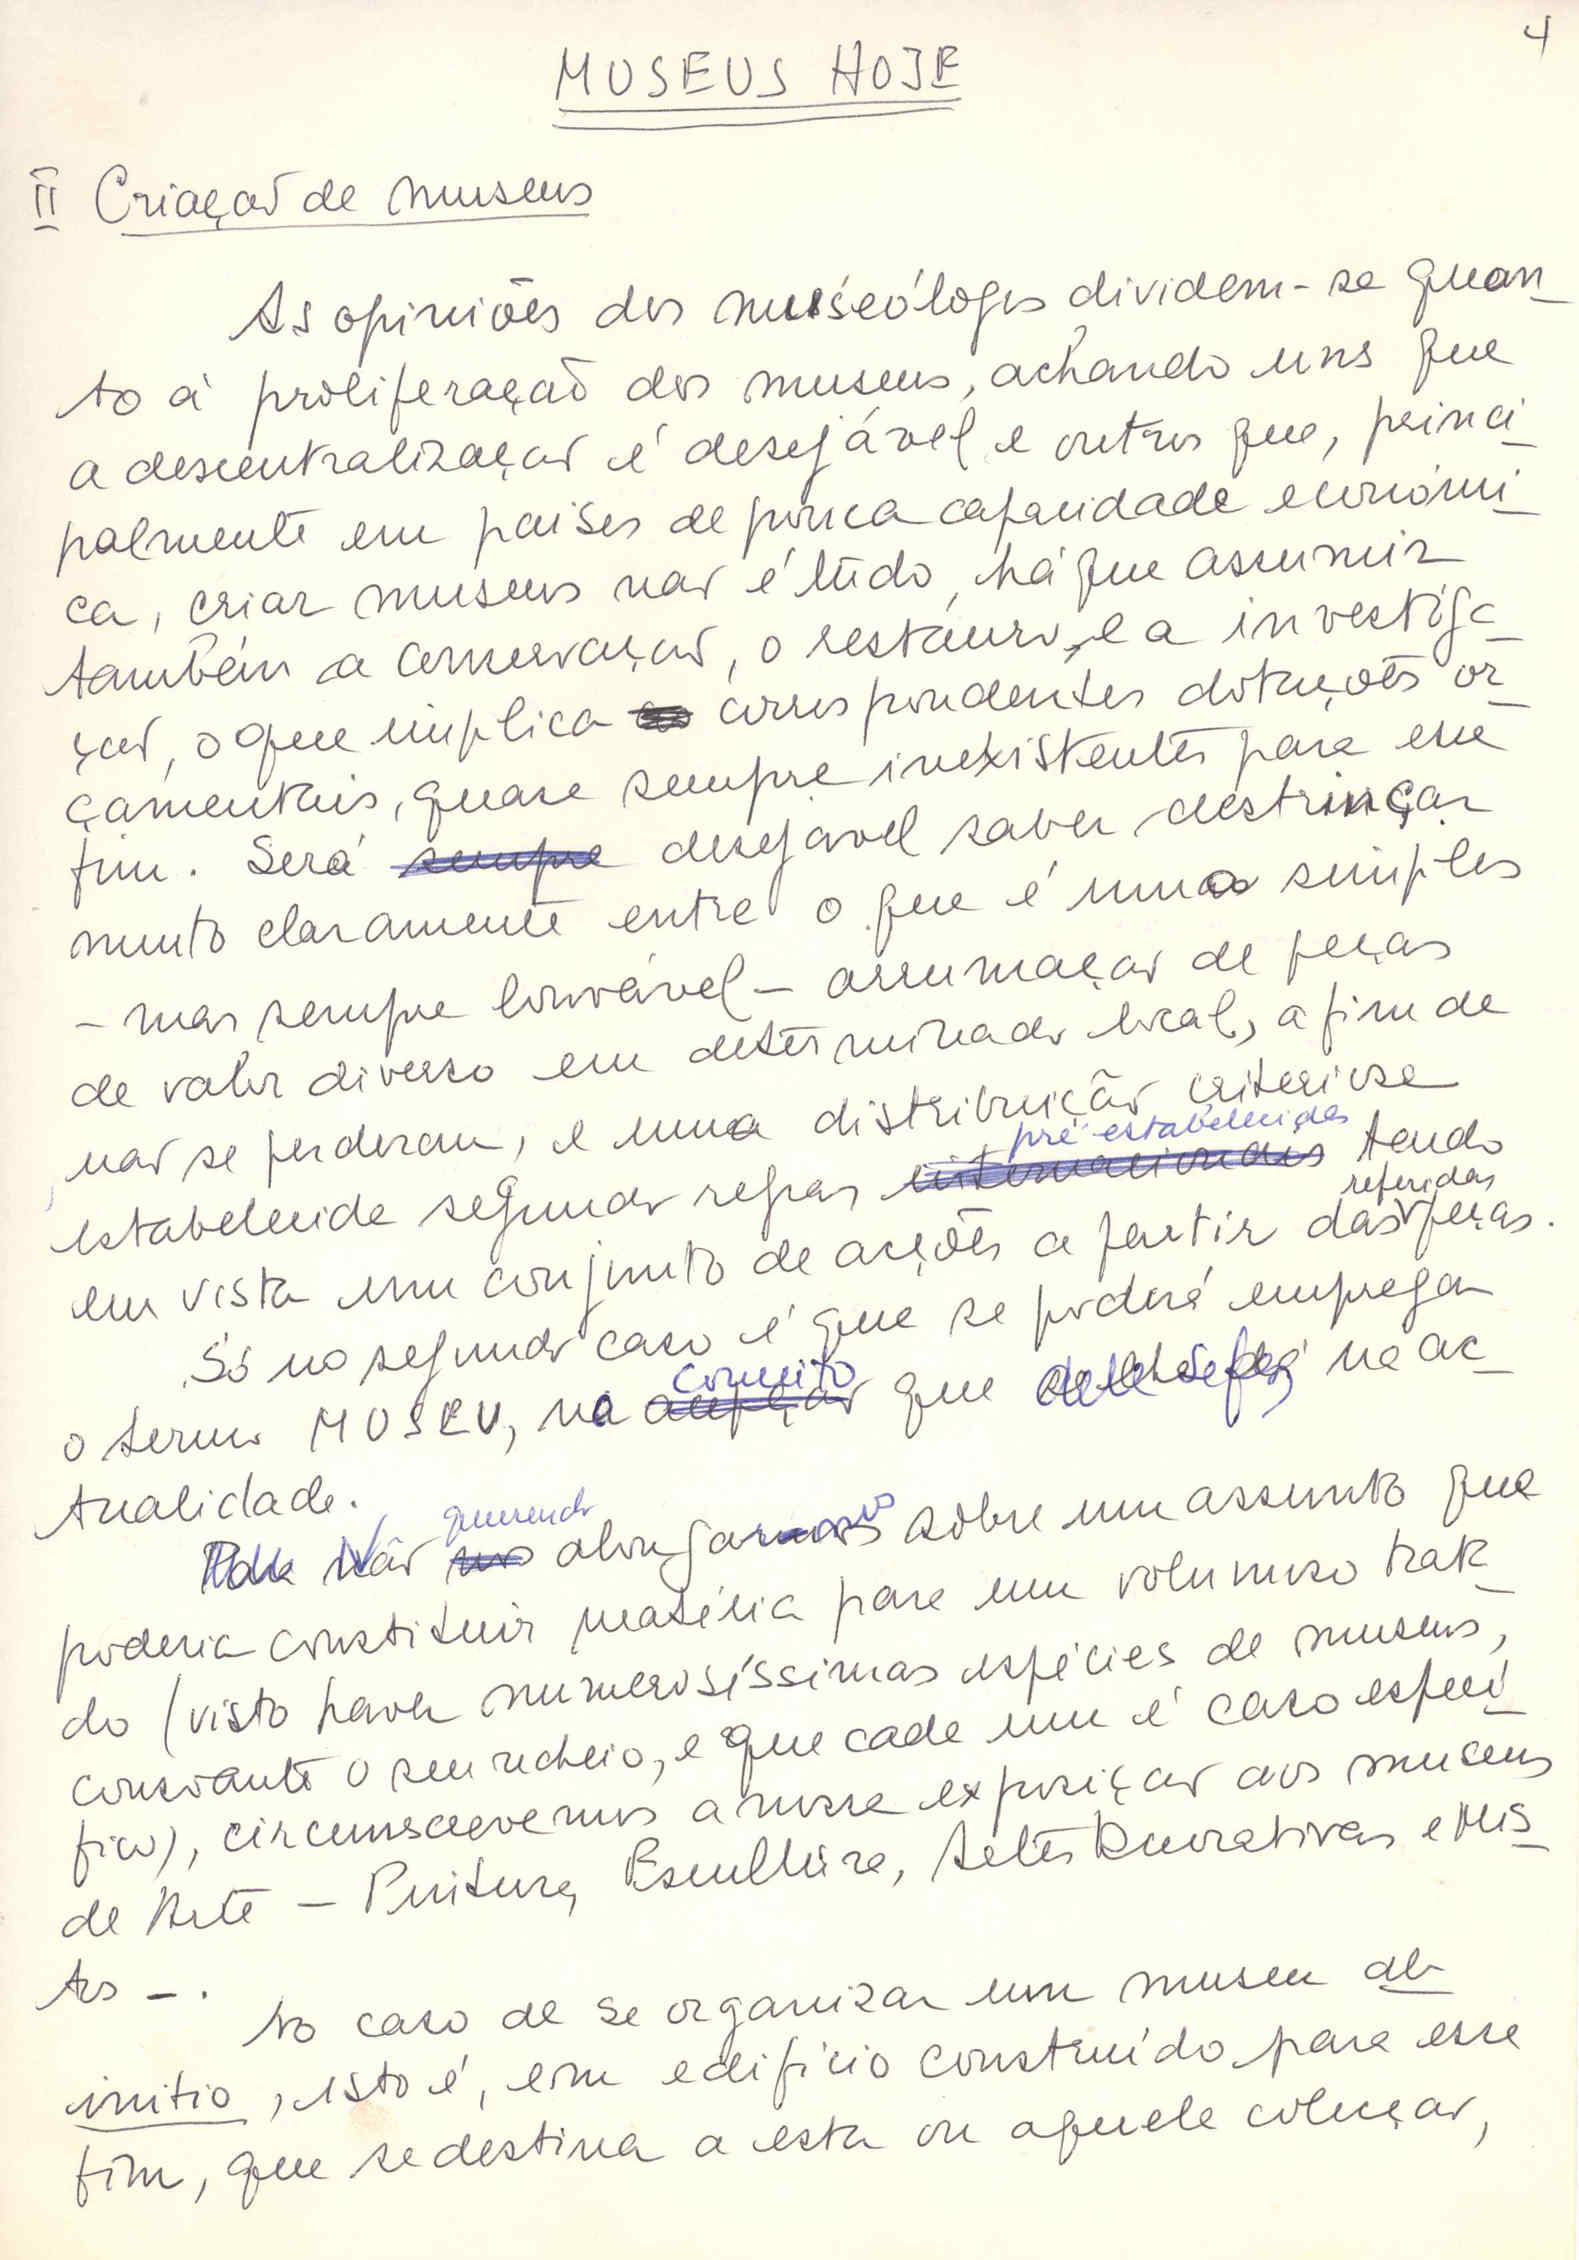 4
MUSEUS HOJE
II Criação de museus
As opiniões dos museólogos dividem-se quan-
to à proliferação dos museus, achando uns que
a descentralização é desejável e outros que, princi-
palmente em paises de pouca capacidade económi-
ca, criar museus não é tudo, há que assumir
também a conservação, o restauro, e a investiga-
ção, o que implica correspondentes dotações or-
çamentais, quase sempre inexistentes para esse
fim. Será sempre desejável saber destrinçar
muito claramente entre o que é uma simples
- mas sempre louvável - arrumação de peças
de valor diverso em determinado local, a fim de
não se perderem, e uma distribuição criteriosa
pré-estabelecidas
estabelecida segundo regras internacionais tendo
referidas
em vista um conjunto de acções a partir das peças.
Só no segundo caso é que se poderá empregar
conceito
o termo MUSEU, no acepção que dele se faz na ac-
tualidade.
querendo
Não nos alongarmos sobre um assunto que
poderia constituir matéria para um volumoso trata-
do (visto haver numerosíssimas espécies de museus,
consoante o seu recheio, e que cada um é caso especí-
fico), circunscrevemos a nossa exposição aos museus
de Arte - Pintura, Escultura, Artes Decorativas e Mis-
tos -.
No caso de se organizar um museu ab
initio, isto é, em edifício construído para esse
fim, que se destina a esta ou aquela colecção,